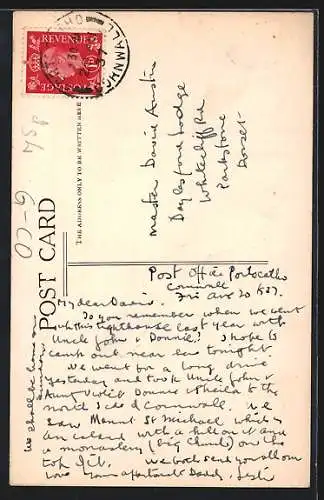 REVENUE
POSTAGE
75p
CO-9
POST CARD
THE ADDRESS ONLY TO BE WRITTEN HERE
Master David Austin
Daylestone Lodge
Whitecliff Rd
Parkstone
Dorset
Post Office Portscatho
Cornwall
Fri Aug 20 1937.
My dear David.
Do you remember when we went
this lighthouse last year with
Uncle John & Donnie? I hope to
camp out near here tonight.
We went for a long drive
yesterday and took Uncle John &
Aunt & Donnie & Sheila to the
north side of Cornwall. We
saw Mount St Michael which is
an island with a hill on it and
a monastery (big Church) on the
top of it. We both send you all our
love your affectionate Daddy.
We shall be home on